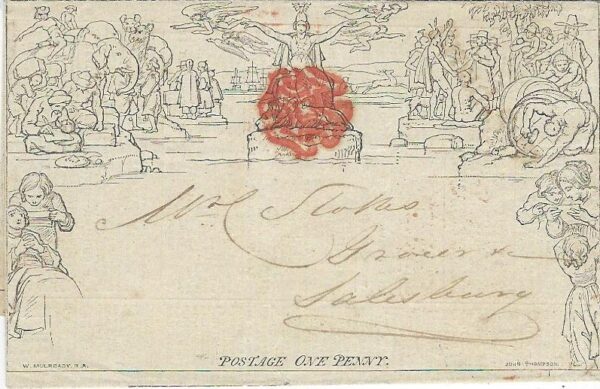 Stokes
Grocer &c
Salesbury
POSTAGE ONE PENNY.
W. MULREADY. R.A.
JOHN THOMPSON.